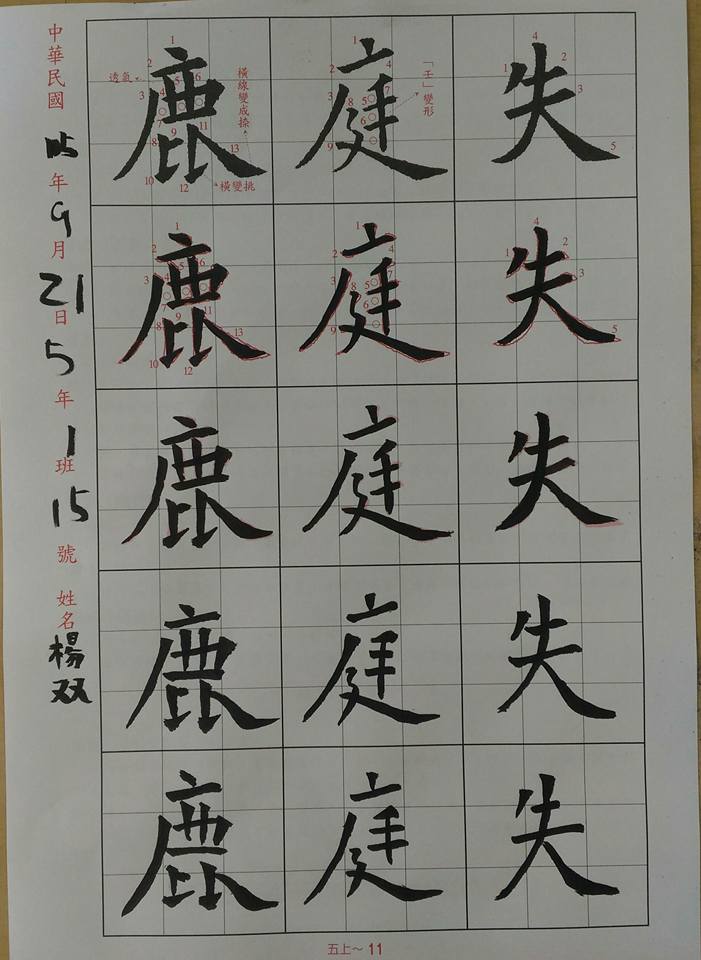 失
失
失
失
失
庭
「壬」變形
庭
庭
庭
庭
鹿
透氣
橫線變成捺
橫變挑
鹿
鹿
鹿
鹿
中華民國105年9月21日5年1班15號 姓名楊双
五上～11